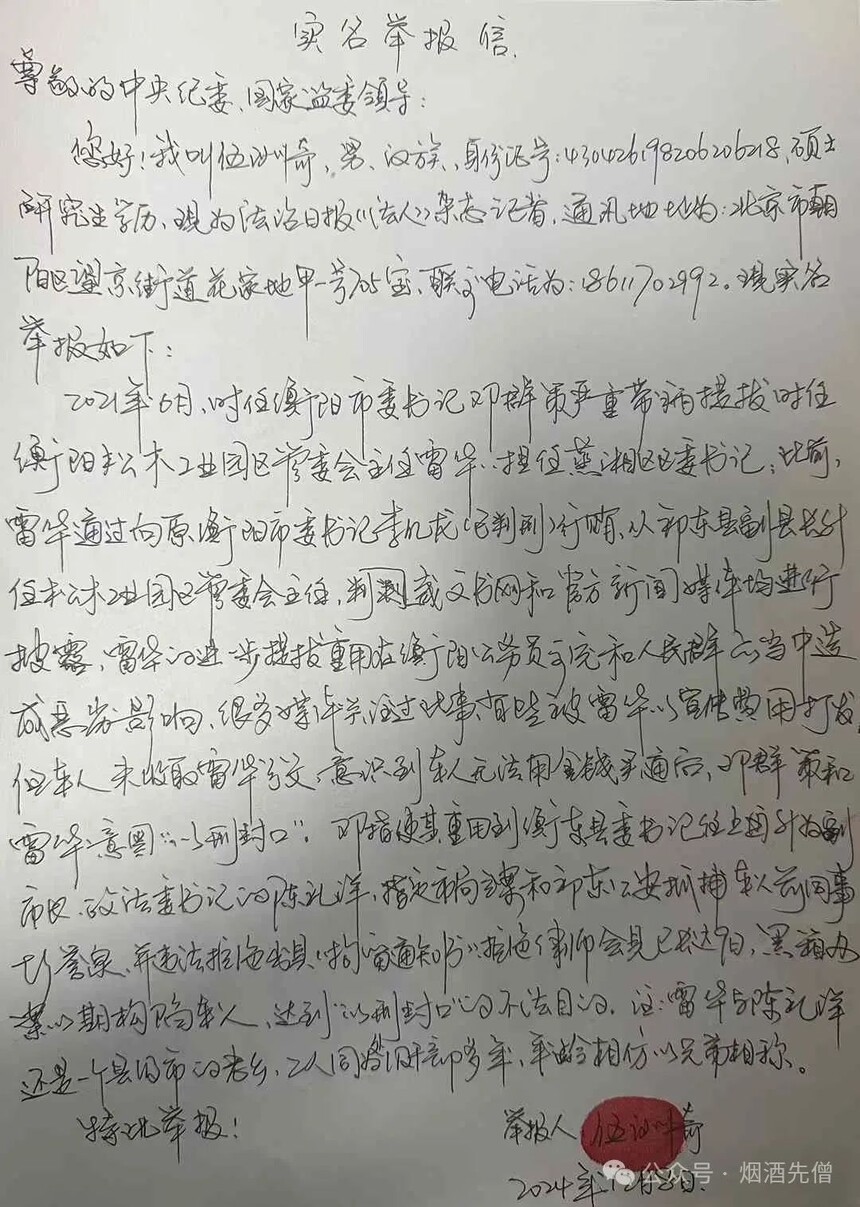 实名举报信
尊敬的中央纪委、国家监委领导：
您好！我叫伍洲奇，男、汉族、身份证号：430426198206206218，硕士
研究生学历、现为法治日报《法人》杂志记者，通讯地址为：北京市朝
阳区望京街道花家地甲一号705室、联系电话为：18611702992。现实名
举报如下：
2021年6月、时任衡阳市委书记邓群策严重带病提拔时任
衡阳松木工业园区管委会主任雷华，担任蒸湘区区委书记；此前，
雷华通过向原衡阳市委书记李亿龙（已判刑）行贿、从祁东县副县长升
任松木工业园区管委会主任，判裁文书网和官方新闻媒体均进行
披露、雷华的进一步提拔重用在衡阳公务员系统和人民群众当中造
成恶劣影响、很多媒体关注过此事、有些被雷华以宣传费用打发，
但本人未收取雷华分文，意识到本人无法用金钱买通后，邓群策和
雷华意图“以刑封口”。邓指使其重用到衡东县委书记任上再升为副
市长、政法委书记的陈礼洋、指定市局专案和祁东公安抓捕本人前同事
彭誉泉、并违法拒绝出具“拘留通知书”、拒绝律师会见已长达9日，黑箱办
案以期构陷本人、达到“以刑封口”的不法目的。注：雷华与陈礼洋
还是一个县的老乡、二人同为干部多年，年龄相仿以兄弟相称。
特此举报！
举报人：伍洲奇
2024年12月8日.
公众号·烟酒先僧